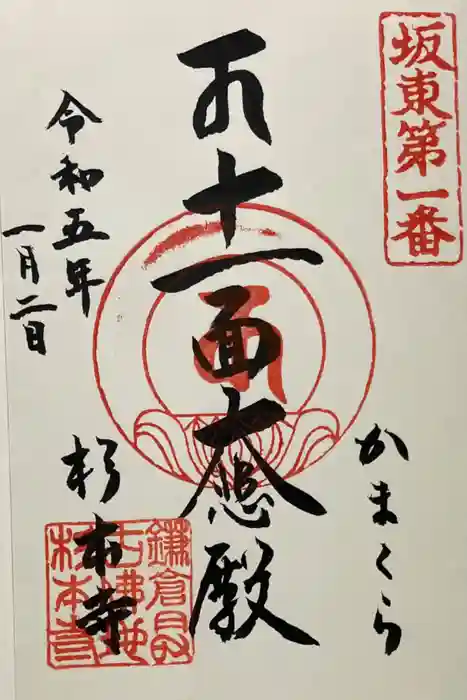 坂東第一番
かまくら
十一面大悲殿
令和五年
一月二日
杉本寺
鎌倉最
古佛地
杉本寺